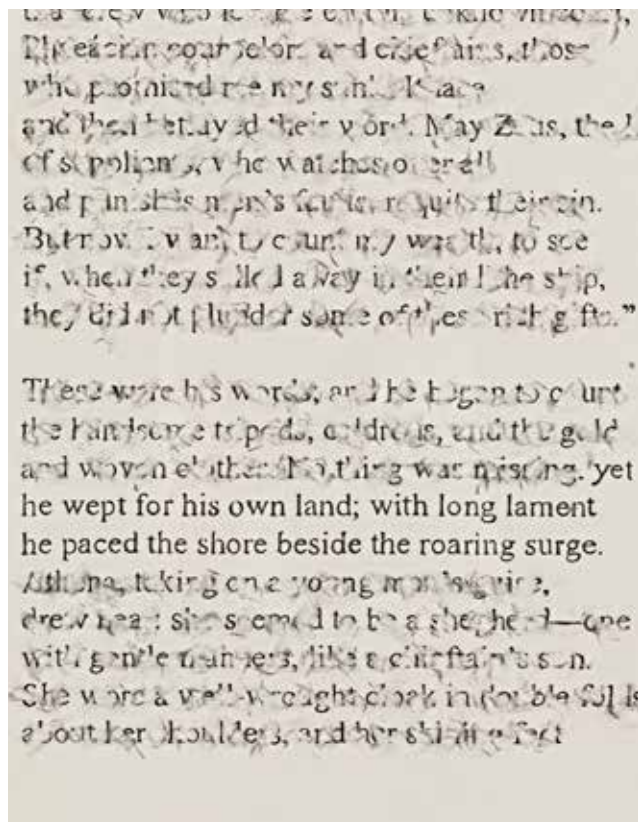 who
counselors and chieftains, those
who promised me my
and then betrayed their word. May Zeus, the
of suppliants, who watches over all
and punishes men's faults, requite their sin.
But now I want to count my wealth, to see
if, when they sailed away in their ship,
they did not plunder some of these rich gifts.”
These were his words, and he began to count
the handsome tripods, caldrons, and the gold
and woven clothes. Nothing was missing. yet
he wept for his own land; with long lament
he paced the shore beside the roaring surge.
Athena, taking on a young man's guise,
drew near: she seemed to be a shepherd—one
with gentle manners, like a chieftain's son.
She wore a well-wrought cloak in double
about her shoulders, and her shining feet